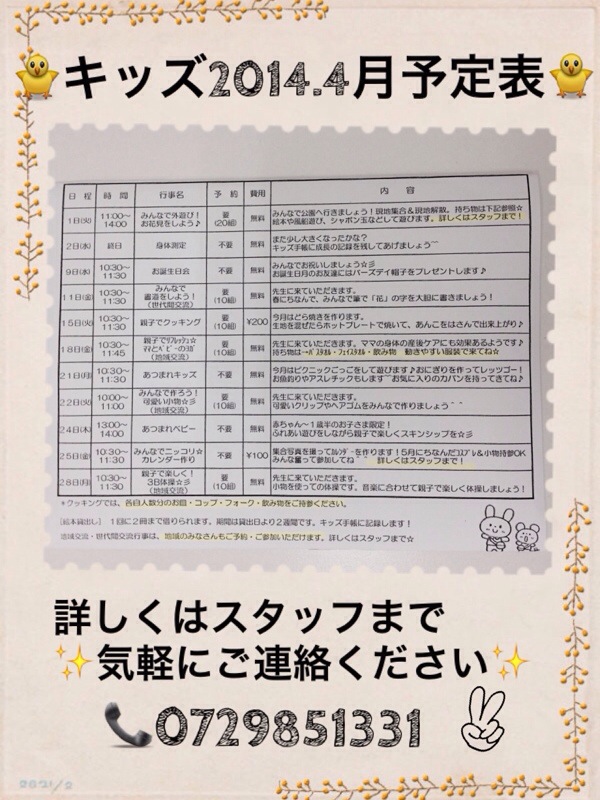 キッズ2014.4月予定表
日 程 時 間 行事名 予 約 費用 内 容
1日(火) 11:00～14:00 みんなで外遊び！お花見をしよう♪ 要(20組) 無料 みんなで公園へ行きましょう！現地集合＆現地解散。持ち物は下記参照☆
絵本や風船遊び、シャボン玉などして遊びます。詳しくはスタッフまで！
2日(水) 終日 身体測定 不要 無料 また少し大きくなったかな？
キッズ手帳に成長の記録を残してあげましょう￣
9日(水) 10:30～11:30 お誕生日会 不要 無料 みんなでお祝いしましょう☆彡
お誕生日月のお友達にはバースデイ帽子をプレゼントします♪
11日(金) 10:30～11:30 みんなで書道をしよう！(世代間交流) 要(10組) 無料 先生に来ていただきます。
春にちなんで、みんなで筆で「花」の字を大胆に書きましょう！
15日(火) 10:30～11:30 親子でクッキング 要(10組) ¥200 今月はどら焼きを作ります。
生地を混ぜたらホットプレートで焼いて、あんこをはさんで出来上がり♪
18日(金) 10:30～11:45 親子でリフレッシュ☆ﾏﾏとﾍﾞﾋﾞｰのﾖｶﾞ(地域交流) 要(10組) 無料 先生に来ていただきます。ママの身体の産後ケアにも効果あるようです♪
持ち物は→ﾊﾞｽﾀｵﾙ・ﾌｪｲｽﾀｵﾙ・飲み物 動きやすい服装で来てね☆
21日(月) 10:30～11:30 あつまれキッズ 不要 無料 今月はピクニックごっこをして遊びます♪おにぎりを作ってレッツゴー！
お魚釣りやアスレチックもします￣お気に入りのカバンを持ってきてね♪
22日(火) 10:00～11:00 みんなで作ろう！可愛い小物☆彡(地域交流) 要(10組) 無料 先生に来ていただきます。
可愛いクリップやヘアゴムをみんなで作りましょう￣￣
24日(木) 13:00～14:00 あつまれベビー 不要 無料 赤ちゃん～1歳半のお子さま限定！
ふれあい遊びをしながら親子で楽しくスキンシップを☆彡
25日(金) 10:30～11:30 みんなでニッコリ☆カレンダー作り 不要 ¥100 集合写真を撮ってｶﾚﾝﾀﾞｰを作ります！5月にちなんだｺｽﾌﾟﾚ＆小物持参OK
みんな奮って参加してね￣ 詳しくはスタッフまで！
28日(月) 10:30～11:30 親子で楽しく！3B体操☆彡(地域交流) 要(10組) 無料 先生に来ていただきます。
小物を使っての体操です。音楽に合わせて親子で楽しく体操しましょう！
＊クッキングでは、各自人数分のお皿・コップ・フォーク・飲み物をご持参ください。
[絵本貸出し] 1回に2冊まで借りられます。期間は貸出日より2週間です。キッズ手帳に記録します！
地域交流・世代間交流行事は、地域のみなさんもご予約・ご参加いただけます。詳しくはスタッフまで☆
詳しくはスタッフまで
気軽にご連絡ください
0729851331